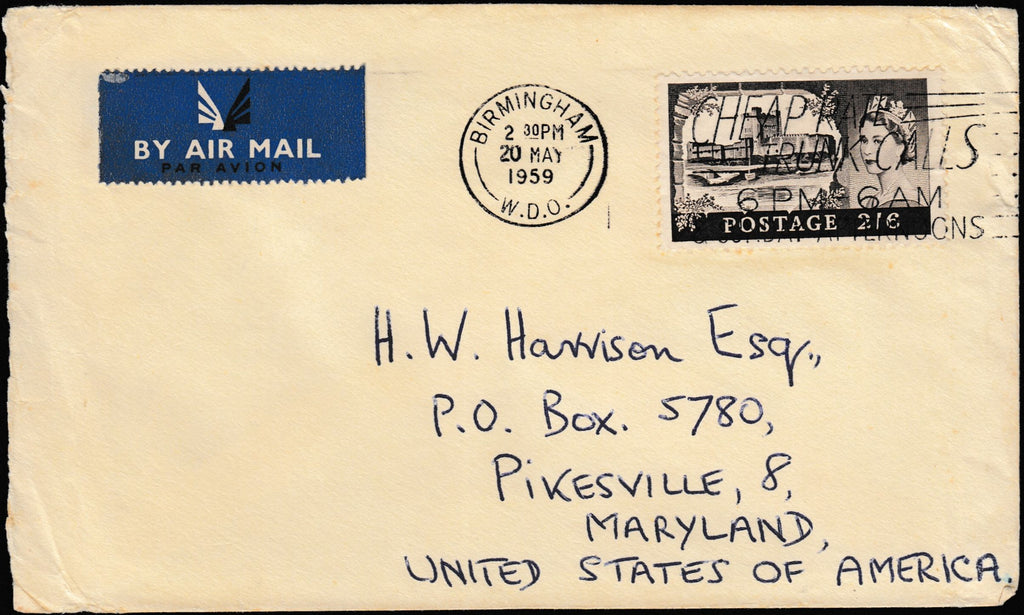 BY AIR MAIL
PAR AVION
BIRMINGHAM
2 30PM
20 MAY
1959
W.D.O.
CHEAP RATE
TRUNK CALLS
6 PM 6 AM
& SUNDAY AFTERNOONS
POSTAGE 2/6
H.W. Harrison Esq.,
P.O. Box. 5780,
PIKESVILLE, 8,
MARYLAND,
UNITED STATES OF AMERICA.